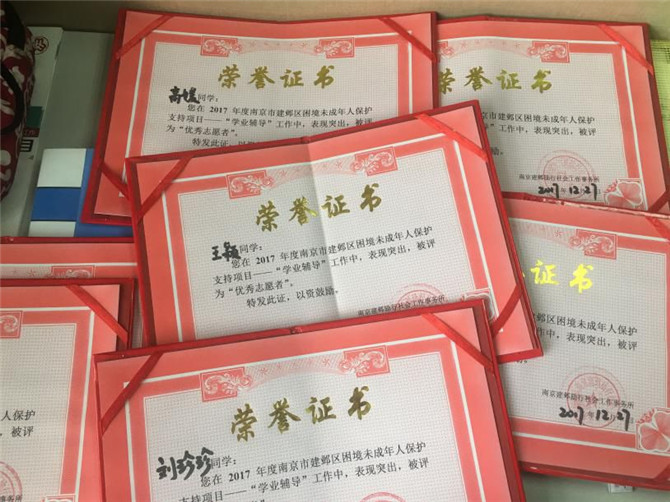 荣誉证书
高媛同学：
您在 2017 年度南京市建邺区困境未成年人保护
支持项目——“学业辅导”工作中，表现突出，被评
为“优秀志愿者”。
特发此证，以资
荣誉证书
年度南京市建邺区困境未成年人保护
辅导”工作中，表现突出，被评
励。
南京建邺励行社会工作事务所
2017年12.27
荣誉证书
王颖同学：
您在 2017 年度南京市建邺区困境未成年人保护
支持项目——“学业辅导”工作中，表现突出，被评
为“优秀志愿者”。
特发此证，以资鼓励。
南京建邺励行社会工作事务所
证书
区困境未成年人保护
中，表现突出，被评
南京建邺励行社会工作事务所
2017年12月27
人保护
被评
荣誉证书
刘珍珍同学：
您在 2017 年度南京市建邺区困境未成年人保护
支持项目——“学业辅导”工作中，表现突出，被评